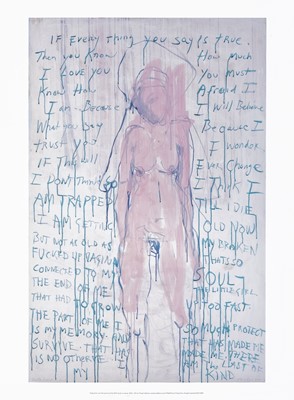 IF EVERY thing YOU SAY IS TRUE.
Then you Know How Much
I LOVE YOU You MUST
Know How AFRAID I
I am. Because I Will Believe
What you Say Because I
trust you I Wonder.
IF This will Ever Change
I DON'T THINK SO I THINK I
AM TRAPPED TILL I DIE
I AM GETTING OLD NOW
BUT NOT AS OLD AS MY BROKEN
FUCKED UP VAGINA THATS SO
CONNECTED TO MY SOUL
THE END OF ME THE LITTLE GIRL
THAT HAD TO GROW UP TOO FAST
THE PART OF ME I SO MUCH PROTECT
IS MY MEMORY AND THAT HAS MADE ME
SURVIVE. THAT HAS MADE ME. THERE
IS NO OTHER I AM THE LAST OF
MY KIND